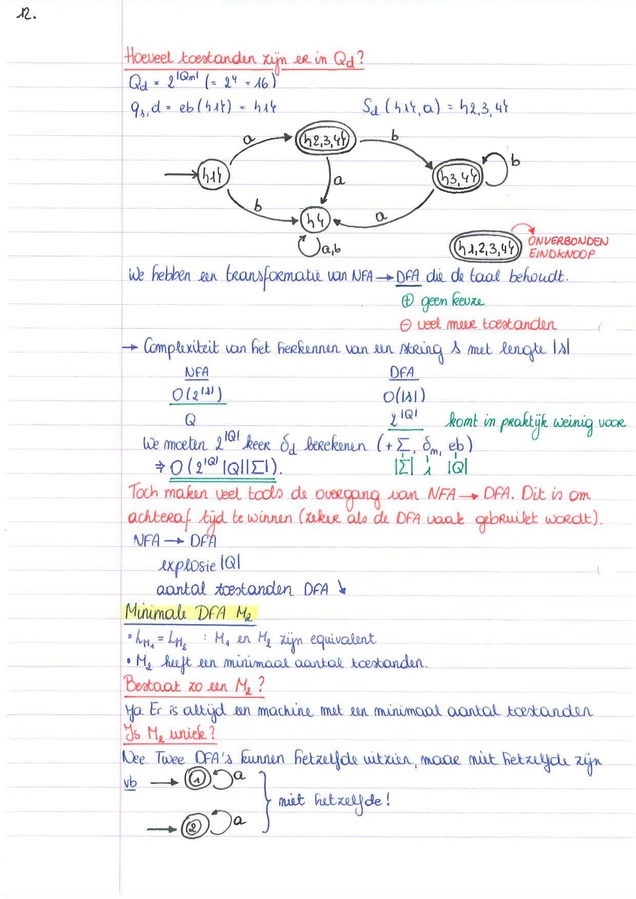 12.
Hoeveel toestanden zijn er in Qd?
Qd = 2^|Qm| (= 2^4 = 16)
qs,d = eb({1}) = {1}    Sd({1}, a) = {2,3,4}
a {2,3,4} b
{1} a {3,4} b
b {} a
a,b {1,2,3,4} ONVERBONDEN
EINDKNOOP
We hebben een transformatie van NFA → DFA die de taal behoudt.
⊕ geen keuze
⊖ veel meer toestanden
→ Complexiteit van het herkennen van een string s met lengte |s|
NFA    DFA
O(2^|s|)    O(|s|)
Q    2^|Q| komt in praktijk weinig voor
We moeten 2^|Q| keer δd berekenen (+ Σ, δm, eb)
⇒ O(2^|Q| |Q||Σ|).    |Σ| 1 |Q|
Toch maken veel tools de overgang van NFA → DFA. Dit is om
achteraf tijd te winnen (zeker als de DFA vaak gebruikt wordt).
NFA → DFA
explosie |Q|
aantal toestanden DFA ↓
Minimale DFA M2
• LM1 = LM2 : M1 en M2 zijn equivalent
• M2 heeft een minimaal aantal toestanden.
Bestaat zo een M2?
Ja. Er is altijd een machine met een minimaal aantal toestanden
Is M2 uniek?
Nee. Twee DFA's kunnen hetzelfde uitzien, maar niet hetzelfde zijn
vb → 1 a
niet hetzelfde!
→ 2 a